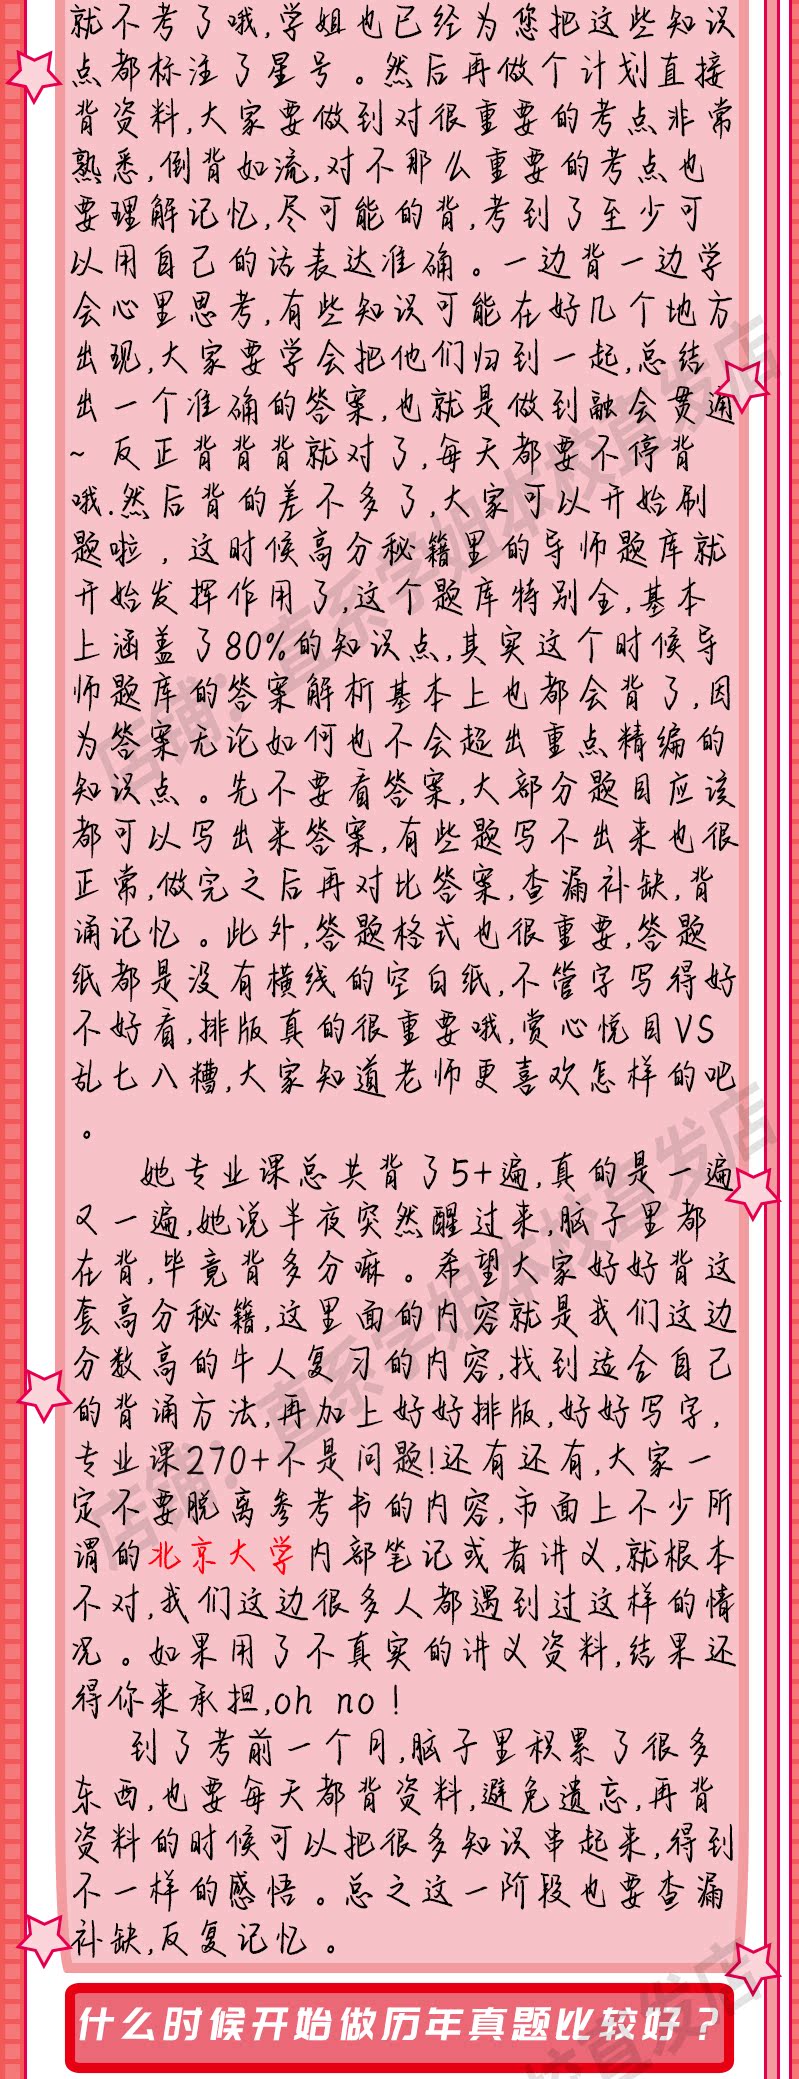 就不考了哦,学姐也已经为您把这些知识
点都标注了星号。然后再做个计划直接
背资料,大家要做到对很重要的考点非常
熟悉,倒背如流,对不那么重要的考点也
要理解记忆,尽可能的背,考到了至少可
以用自己的话表达准确。一边背一边学
会心里思考,有些知识可能在好几个地方
出现,大家要学会把他们归到一起,总结
出一个准确的答案,也就是做到融会贯通
~ 反正背背背就对了,每天都要不停背
哦.然后背的差不多了,大家可以开始刷
题啦，这时候高分秘籍里的导师题库就
开始发挥作用了,这个题库特别全,基本
上涵盖了80%的知识点,其实这个时候导
师题库的答案解析基本上也都会背了,因
为答案无论如何也不会超出重点精编的
知识点。先不要看答案,大部分题目应该
都可以写出来答案,有些题写不出来也很
正常,做完之后再对比答案,查漏补缺,背
诵记忆。此外,答题格式也很重要,答题
纸都是没有横线的空白纸,不管字写得好
不好看,排版真的很重要哦,赏心悦目VS
乱七八糟,大家知道老师更喜欢怎样的吧
。
她专业课总共背了5+遍,真的是一遍
又一遍,她说半夜突然醒过来,脑子里都
在背,毕竟背多分嘛。希望大家好好背这
套高分秘籍,这里面的内容就是我们这边
分数高的牛人复习的内容,找到适合自己
的背诵方法,再加上好好排版,好好写字,
专业课270+不是问题!还有还有,大家一
定不要脱离参考书的内容,市面上不少所
谓的北京大学内部笔记或者讲义,就根本
不对,我们这边很多人都遇到过这样的情
况。如果用了不真实的讲义资料,结果还
得你来承担,oh no!
到了考前一个月,脑子里积累了很多
东西,也要每天都背资料,避免遗忘,再背
资料的时候可以把很多知识串起来,得到
不一样的感悟。总之这一阶段也要查漏
补缺,反复记忆。
什么时候开始做历年真题比较好？
店铺：直系学姐本校直发店
店铺：直系学姐本校直发店
校直发店